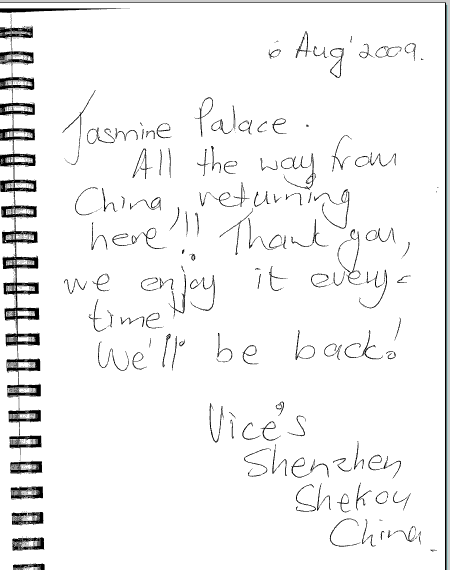 6 Aug' 2009.
Jasmine Palace.
All the way from
China, returning
here!!! Thank you,
we enjoy it every-
time!
We'll be back!
Vice's
Shenzhen
Shekou
China.